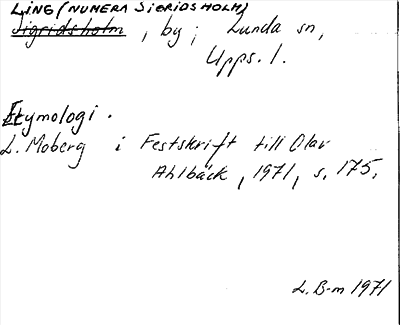 LING (NUMERA SIGRIDSHOLM)
Sigridsholm, by; Lunda sn,
Upps. l.
Etymologi.
L. Moberg i Festskrift till Olav
Ahlbäck, 1971, s. 175.
L. B-m 1971